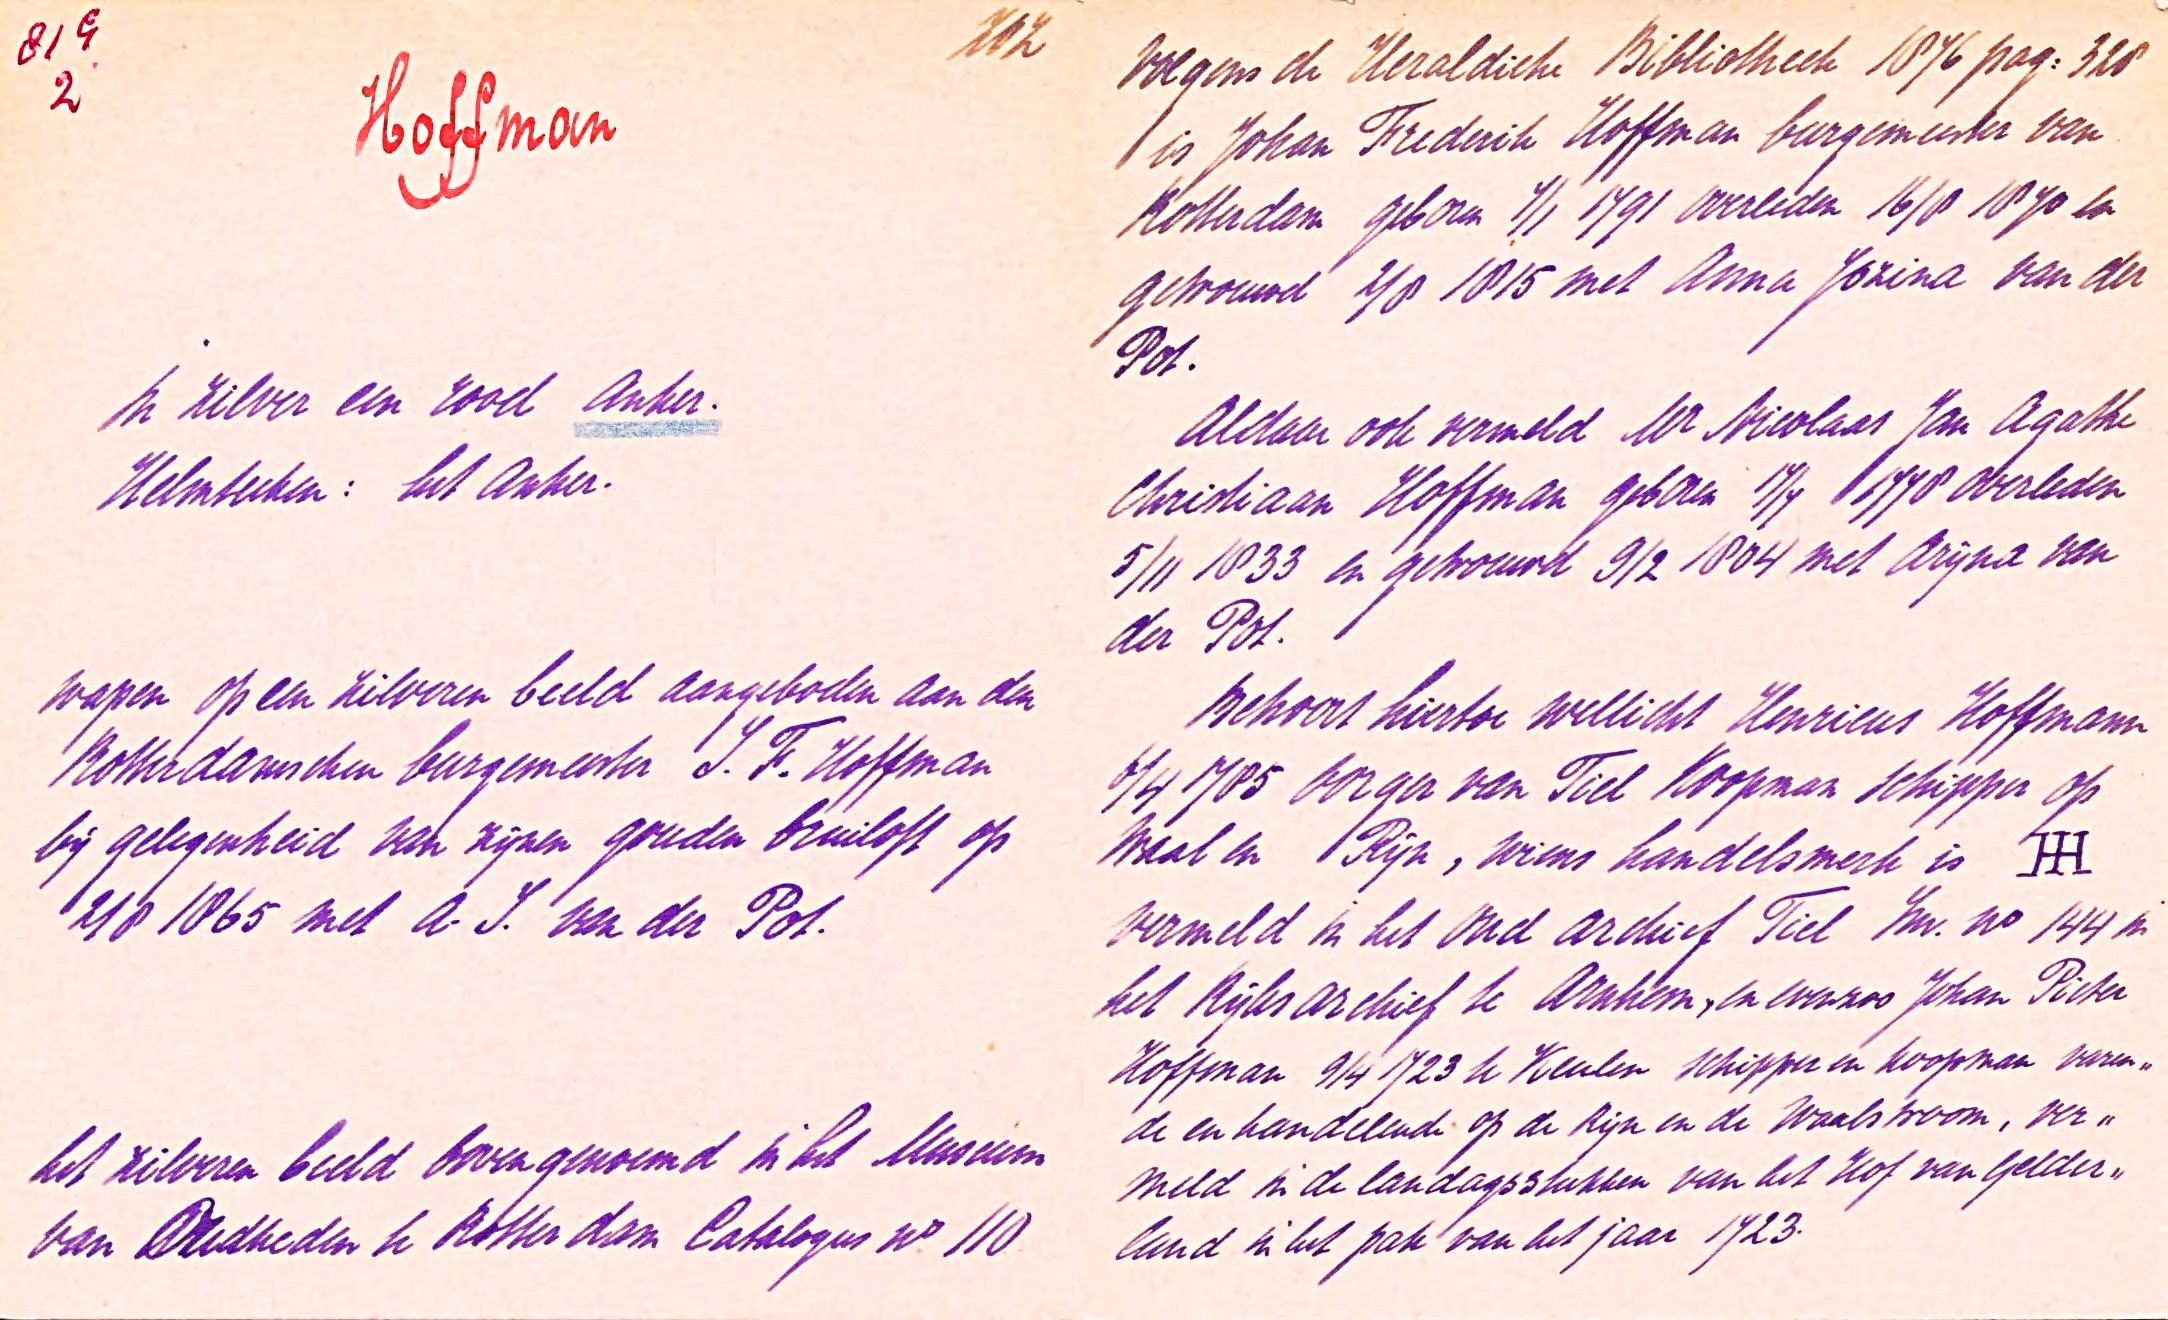 819
2
202
Hoffman
In zilver een rood Anker.
Helmteeken: het Anker.
wapen op een zilveren beeld aangeboden aan den
Rotterdamschen burgemeester J. F. Hoffman
bij gelegenheid van zijnen gouden bruiloft op
2/8 1865 met A. J. van der Pot.
het zilveren beeld bovengenoemd in het Museum
van Oudheden te Rotterdam Catalogus no 110
Volgens de Heraldieke Bibliotheek 1876 pag: 328
is Johan Frederik Hoffman burgemeester van
Rotterdam geboren 7/1 1791 overleden 16/8 1870 en
getrouwd 2/8 1815 met Anna Jozina van der
Pot.
Aldaar ook vermeld Mr Nicolaas Jan Agathe
Christiaan Hoffman geboren 17/7 1778 overleden
5/11 1833 en getrouwd 9/2 1804 met Arijna van
der Pot.
Behoort hiertoe wellicht Henricus Hoffmann
6/4 1785 borger van Tiel Koopman schipper op
Waal en Rijn, wiens handelsmerk is HH
vermeld in het Oud archief Tiel Inv. no 144 in
het Rijksarchief te Arnhem, en evenzoo Johan Pieter
Hoffman 9/4 1723 te Keulen schipper en koopman varen„
de en handelende op de Rijn en de Waalstroom, ver„
meld in de landagsstukken van het Hof van Gelder„
land in het pak van het jaar 1723.